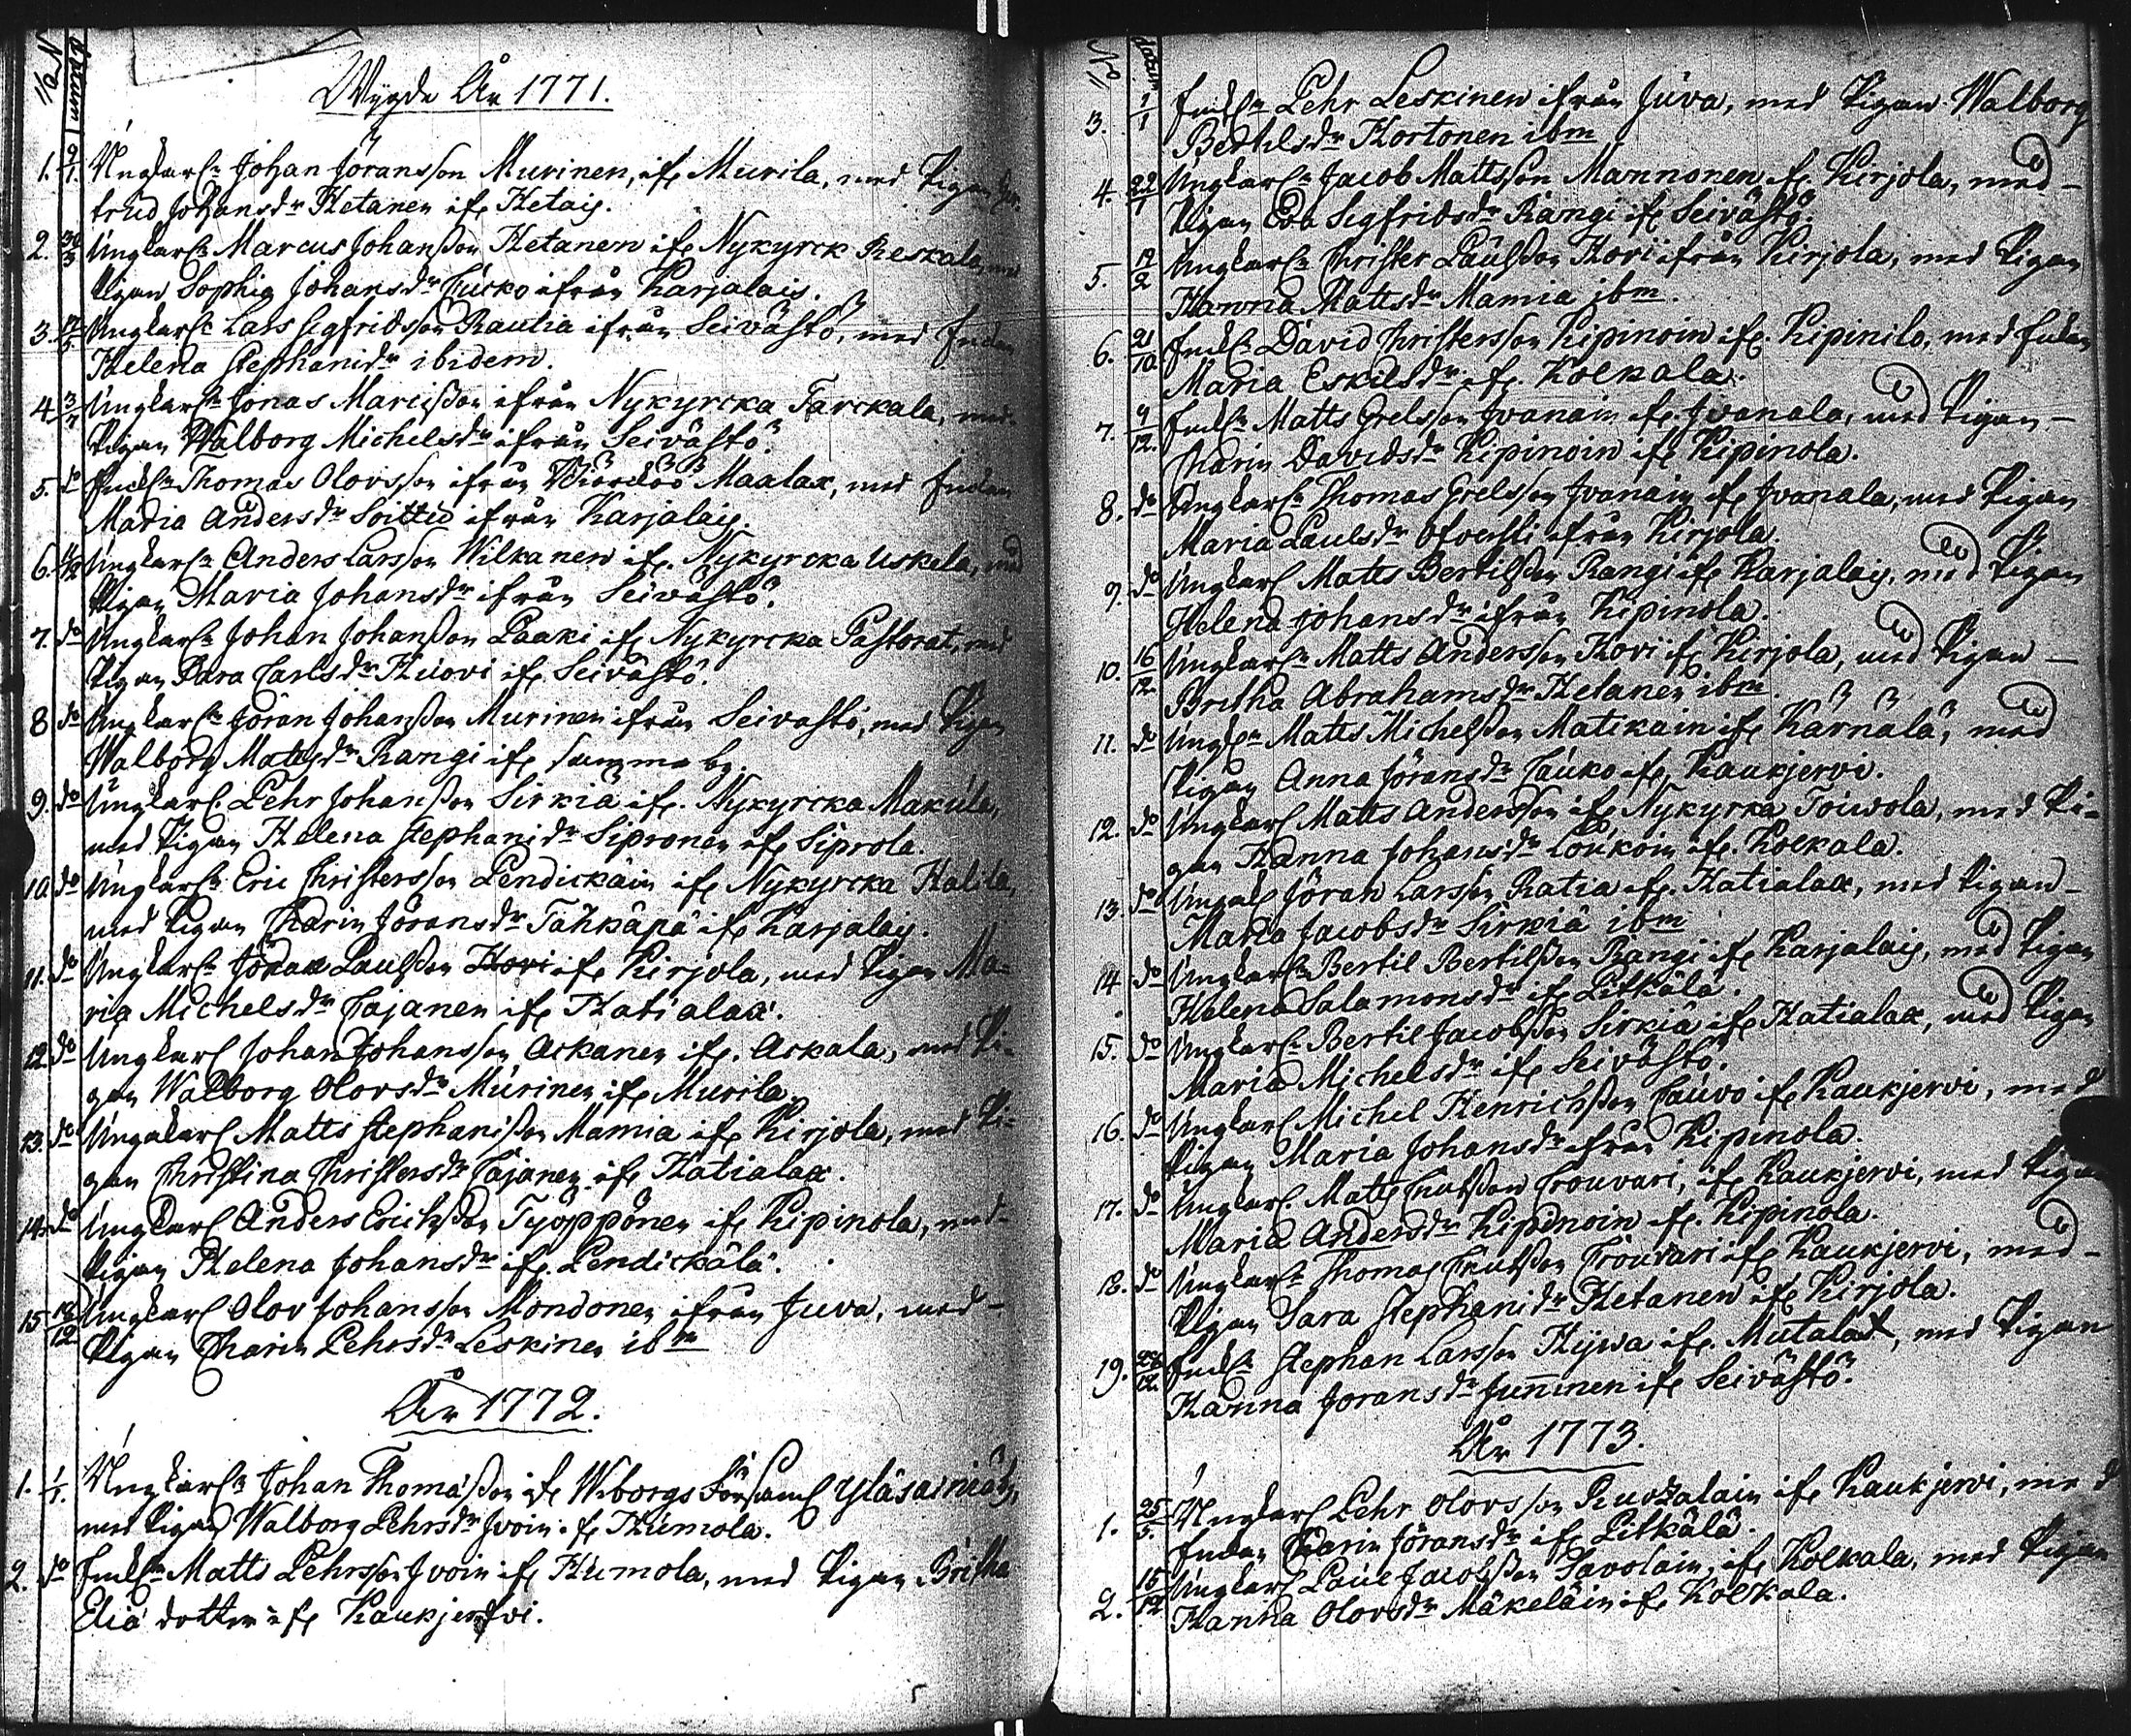 No datum
Wigde År 1771.
1. 9/1. Ungkarln Johan Jöransson Murinen, ifr Murila, med Pigan Ger-
trud Johansdr Hetanen ifr Hetais.
2. 30/3 Ungkarln Marcus Johansson Hetanen ifr Nykyrck Reskala, med
Pigan Sophia Johansdr Tucko ifrån Karjalais.
3. 17/5 Ungkarln Lars Segfridsson Rautia ifrån Seivästö, med Enkan
Helena Stephanidr ibidem.
4. 3/7 Ungkarln Jonas Marcisson ifrån Nykyrcka Tarckala, med
Pigan Walborg Michelsdr ifrån Seivästö.
5. do Enkln Thomas Olovsson ifrån Maalax, med Enkan
Maria Andersdr Soittu ifrån Karjalais.
6. Ungkarln Anders Larsson Wilkanen ifr Nykyrcka Uskela, med
Pigan Maria Johansdr ifrån Seivästö.
7. do Ungkarln Johan Johansson Paaki ifr Nykyrcka Pastorat, med
Pigan Sara Carlsdr Huovi ifr Seivästö.
8 do Ungkarln Jöran Johansson Murinen ifrån Seivästö, med Pigan
Walborg Mattsdr Rangi ifr samma by.
9. do Ungkarl Pehr Johansson Sirkiä ifr Nykyrcka Makula,
med Pigan Helena Stephanidr Sipronen ifr Siprola.
10. do Ungkarln Eric Christersson Lendickäin ifr Nykyrcka Halila,
med Pigan Charin Jöransdr Tähkäpä ifr Karjalais.
11. do Ungkarln Jöran Paulsson Hovi ifr Kirjola, med Pigan Ma-
ria Michelsdr Tajanen ifr Hatialax.
12. do Ungkarl Johan Johansson Ackanen ifr Ackala, med Pi-
gan Walborg Olovsdr Murinen ifr Murila.
13. do Ungakarl Matts Stephanisson Mamia ifr Kirjola, med Pi-
gan Christina Christersdr Tajanen ifr Hatialax.
14. do Ungkarl Anders Erichsson Työppönen ifr Kipinola, med
Pigan Helena Johansdr ifr Lendickälä.
15 16/12 Ungkarl Olov Johansson Mondonen ifrån Juva, med -
Pigan Charin Pehrsdr Leskinen ibm
År 1772.
1. 1/1. Ungkarln Johan Thomasson ifr Wiborgs Församl
med Pigan Walborg Pehrsdr Ivoin ifr Humola.
2. do Enkln Matts Pehrsson Ivoin ifr Humola, med Pigan Britha
Elia dotter ifr Kaukjervi.
No datum
3. 1/1 Enkln Pehr Leskinen ifrån Juva, med Pigan Walborg
Berthelsdr Hortonen ibm
4. 22/1 Ungkarln Jacob Mattsson Mannonen ifr Kirjola, med -
Pigan Eva Segfridsdr Rangi ifr Seivästö.
5. 12/2 Ungkarln Christer Paulsson Hovi ifrån Kirjola, med Pigan
Hanna Mattsdr Mamia ibm.
6. 21/10 Enkln David Christersson Kipinoin ifr Kipinilo, med Enkan
Maria Eskilsdr ifr Kolkala.
7. 4/12. Enkln Matts Grelsson Ivanain ifr Ivanala, med Pigan -
Charin Davidsdr Kipinoin ifr Kipinola.
8. do Ungkarln Thomas Grelsson Ivanain ifr Ivanala, med Pigan
Maria Paulsdr ifrån Kirjola.
9. do Ungkarl Matts Bertilsson Rangi ifr Karjalais, med Pigan
Helena Johansdr ifrån Kipinola.
10. 16/12. Ungkarln Matts Andersson Hovi ifr Kirjola, med Pigan -
Britha Abrahamsdr Hetanen ibm.
11. do Ungkln Matts Michelsson Matikain ifr Kärnälä, med
Pigan Anna Jöransdr Tauko ifr Kaukjervi.
12. do Ungkarl Matts Andersson ifr Nykyrka Toiwola, med Pi-
gan Hanna Johansdr Loukoin ifr Kolkala.
13. do Ungakl Jöran Larsson Ratia ifr Hatialax, med Pigan -
Maria Jacobsdr Sirkiä ibm
14 do Ungkarln Bertil Bertilsson Rangi ifr Karjalais, med Pigan
Helena Salamonsdr ifr Pitkälä.
15. do Ungkarln Bertil Jacobsson Sirkiä ifr Hatialax, med Pigan
Maria Michelsdr ifr Seivästö.
16. do Ungkarl Michel Henrichsson Tauvo ifr Kaukjervi, med
Pigan Maria Johansdr ifrån Kipinola.
17. do Ungkarl Matts Knutsson Trouvari, ifr Kaukjervi, med Pigan
Maria Andersdr Kipinoin ifr Kipinola.
18. do Ungkarln Thomas Knutsson Trouvari ifr Kaukjervi, med -
Pigan Sara Stephanidr Hetanen ifr Kirjola.
19. 26/12. Enkln Stephan Larsson Hywa ifr Mutalax, med Pigan
Hanna Joransdr Junninen ifr Seivästö.
År 1773.
1. 25/3. Ungkarl Pehr Olovsson Ruozalain ifr Kaukjervi, med
Enkan Charin Jöransdr ifr Pitkälä.
2. 15/12 Ungkarl Paul Jacobsson Savolain ifr Kolkala, med Pigan
Hanna Olovsdr Mäkeläin ifr Kolkala.